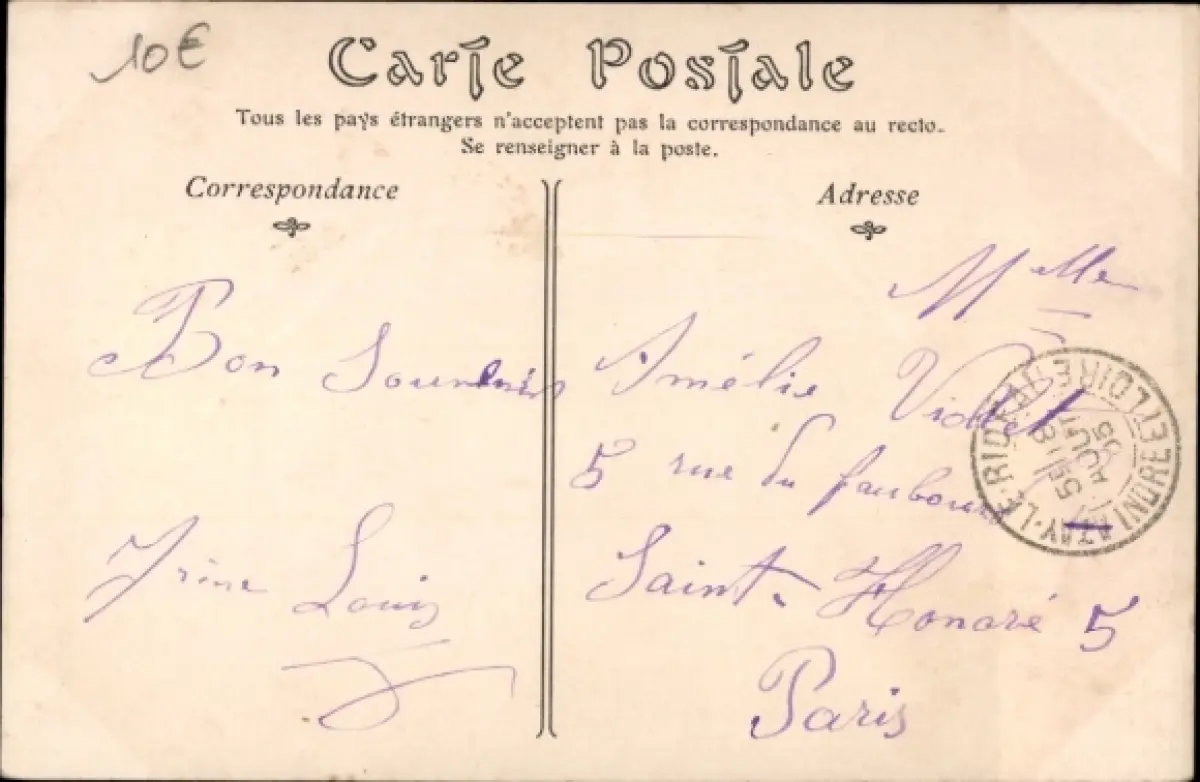 10€
Carte Postale
Tous les pays étrangers n'acceptent pas la correspondance au recto.
Se renseigner à la poste.
Correspondance
Bon Souvenirs
Irène Louis
Adresse
Melle
Amélie Viollet
5 rue du faubourg
Saint-Honoré 5
Paris
AZAY-LE-RIDEAU INDRE ET LOIRE
5E 18
AOUT
05